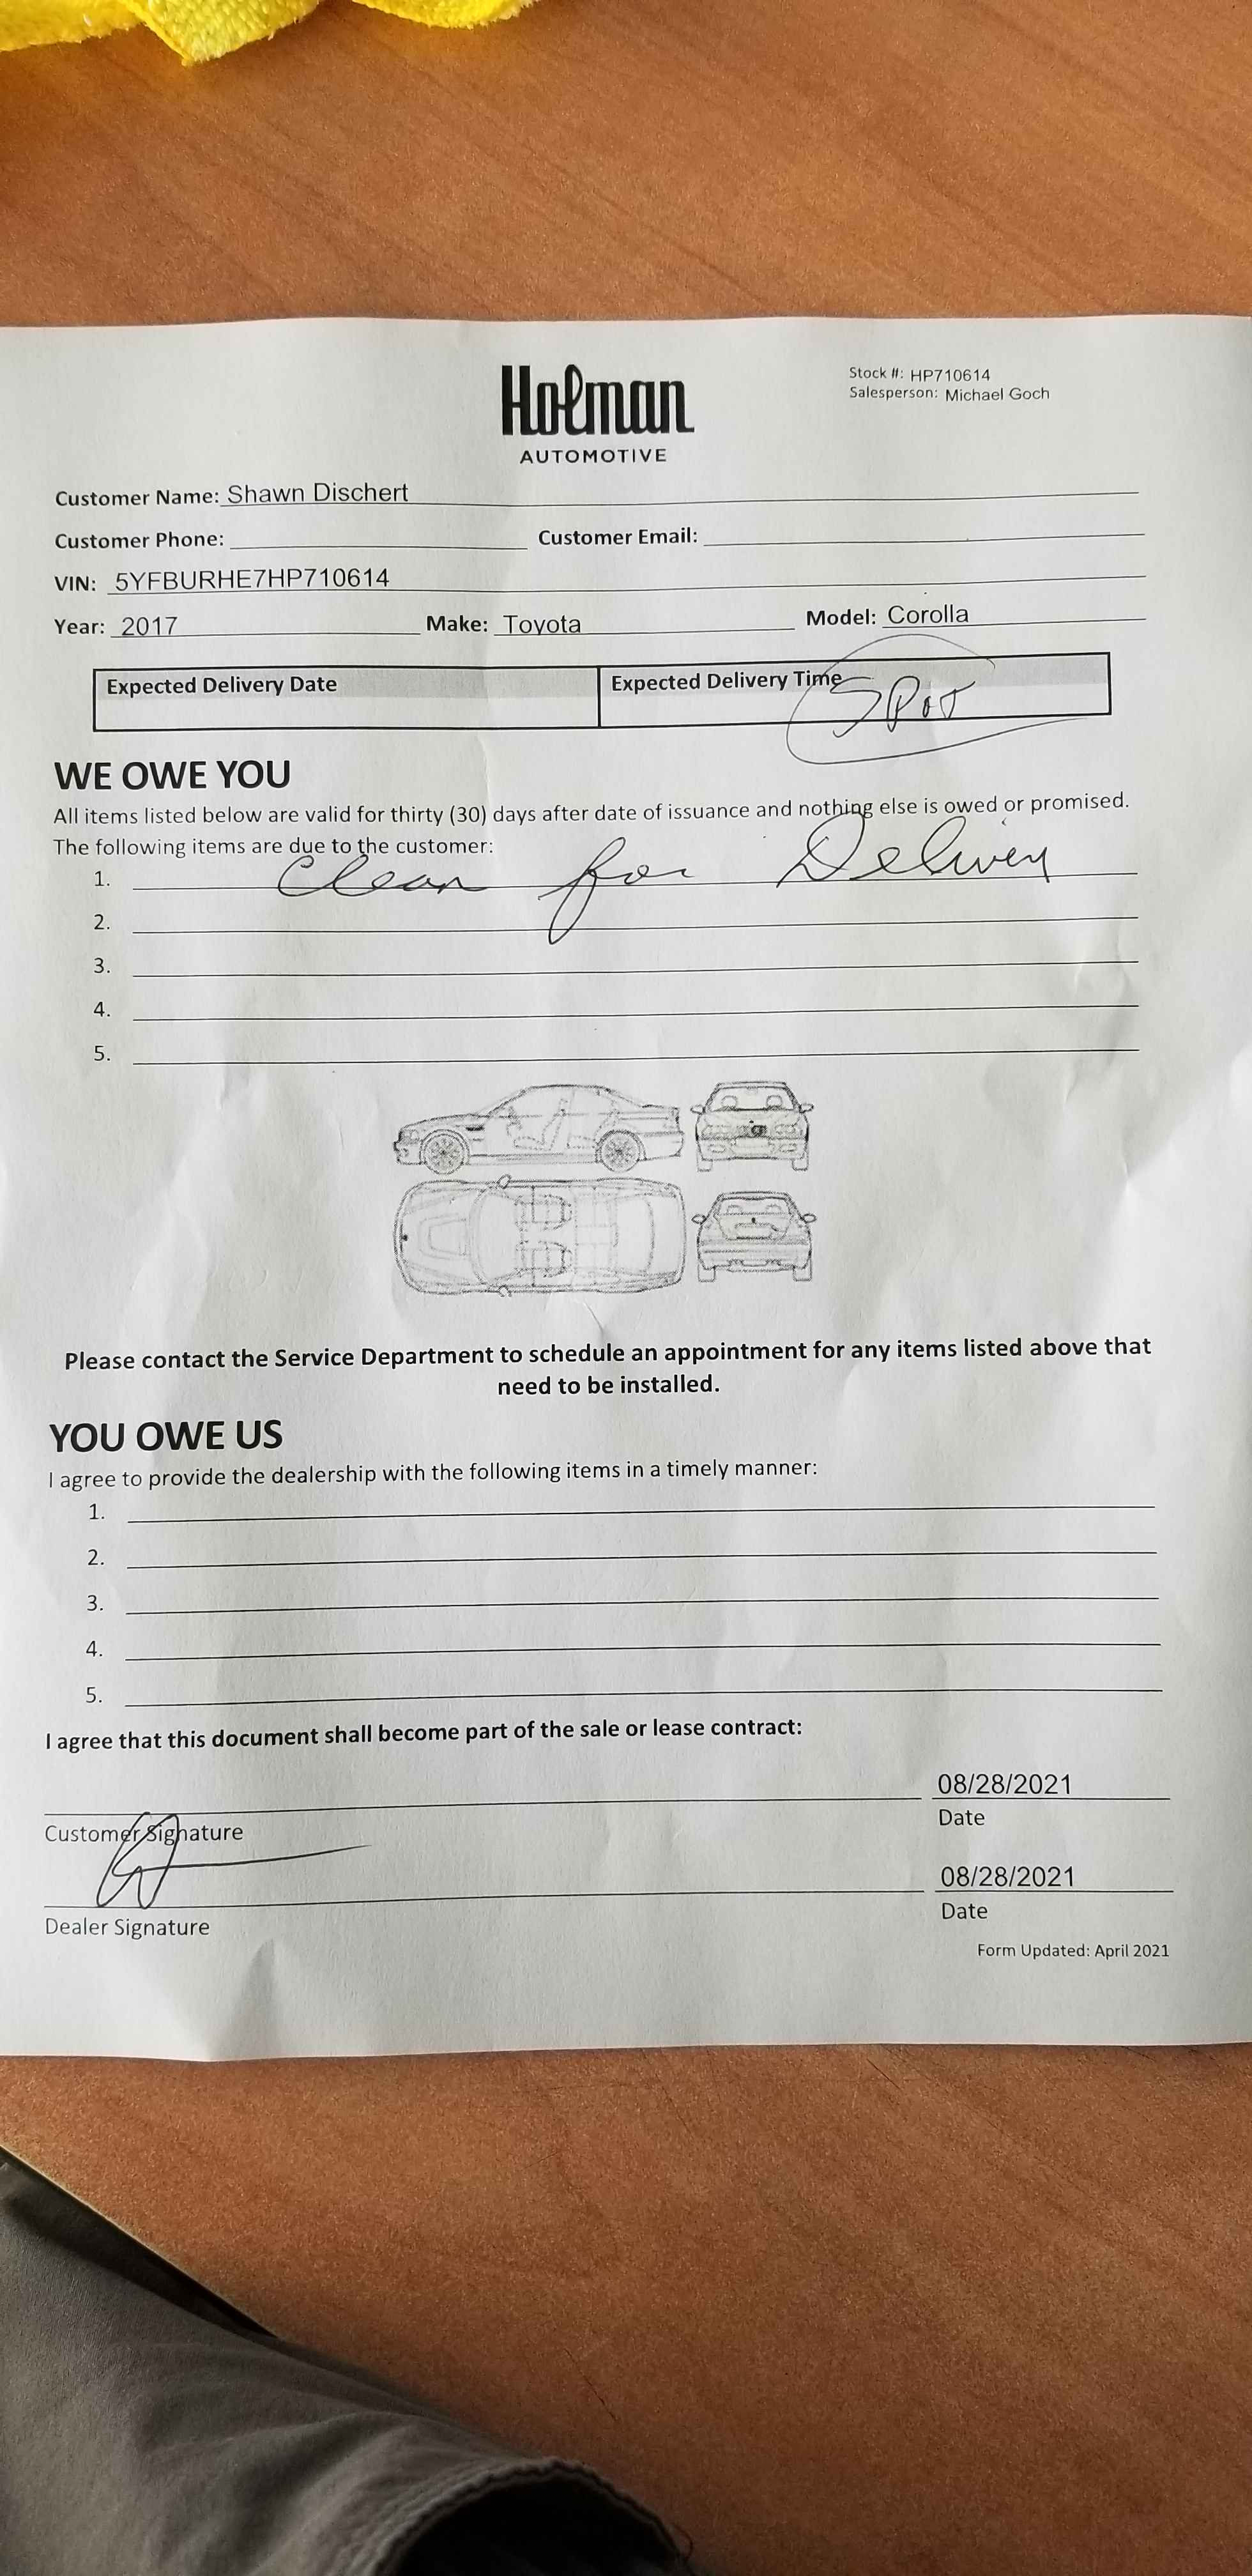 Holman
AUTOMOTIVE
Stock #: HP710614
Salesperson: Michael Goch
Customer Name: Shawn Dischert
Customer Phone: Customer Email:
VIN: 5YFBURHE7HP710614
Year: 2017 Make: Toyota Model: Corolla
Expected Delivery Date Expected Delivery Time
SPOT
WE OWE YOU
All items listed below are valid for thirty (30) days after date of issuance and nothing else is owed or promised.
The following items are due to the customer:
1. Clean for Delivery
2.
3.
4.
5.
Please contact the Service Department to schedule an appointment for any items listed above that
need to be installed.
YOU OWE US
I agree to provide the dealership with the following items in a timely manner:
1.
2.
3.
4.
5.
I agree that this document shall become part of the sale or lease contract:
08/28/2021
Customer Signature Date
08/28/2021
Dealer Signature Date
Form Updated: April 2021